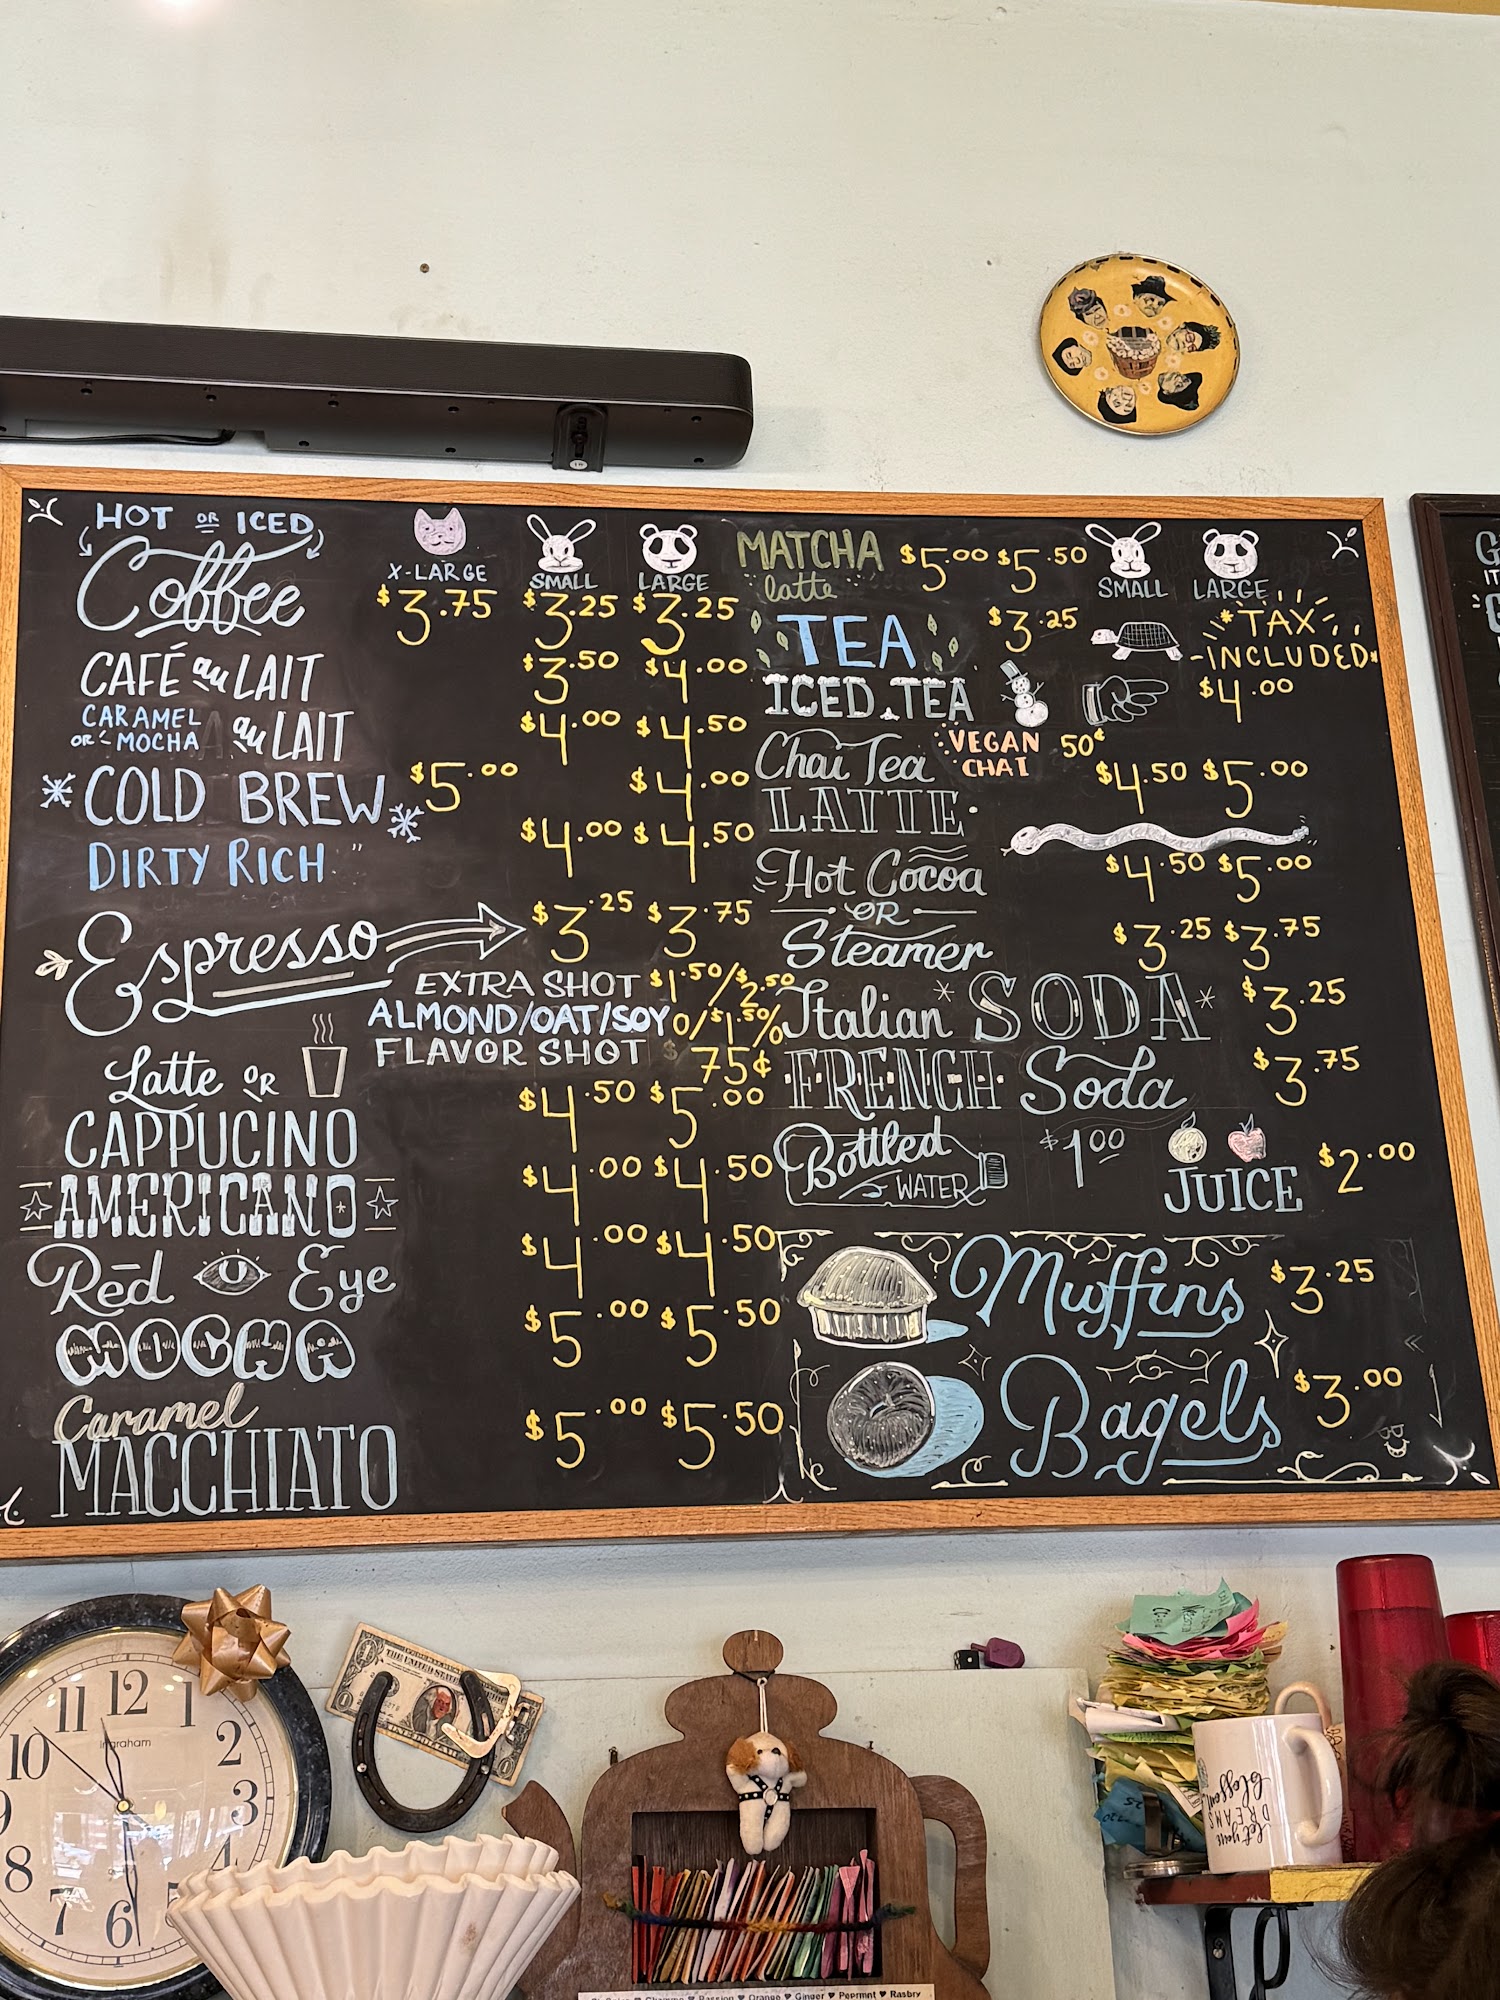 HOT OR ICED
Coffee
X-LARGE SMALL LARGE
$3.75 $3.25 $3.25
CAFÉ au LAIT $3.50 $4.00
CARAMEL OR MOCHA au LAIT $4.00 $4.50
COLD BREW $5.00 $4.00
DIRTY RICH $4.00 $4.50
Espresso $3.25 $3.75
EXTRA SHOT $1.50/$2.50
ALMOND/OAT/SOY
FLAVOR SHOT $ 75¢
Latte OR
CAPPUCINO $4.50 $5.00
AMERICANO $4.00 $4.50
Red Eye $4.00 $4.50
MOCHA $5.00 $5.50
Caramel
MACCHIATO $5.00 $5.50
MATCHA latte $5.00 $5.50
SMALL LARGE
TEA $3.25
*TAX
-INCLUDED*
ICED TEA $4.00
VEGAN CHAI 50¢
Chai Tea
LATTE $4.50 $5.00
Hot Cocoa $4.50 $5.00
OR
Steamer $3.25 $3.75
Italian SODA $3.25
FRENCH Soda $3.75
Bottled WATER $1.00
JUICE $2.00
Muffins $3.25
Bagels $3.00
11 12 1
10 2
9 3
8 4
7 6
Ingraham
THE UNITED STATES
ONE DOLLAR
let your
DREAMS
blossom
Passion ♥ Orange ♥ Ginger ♥ Peprmnt ♥ Rasbry